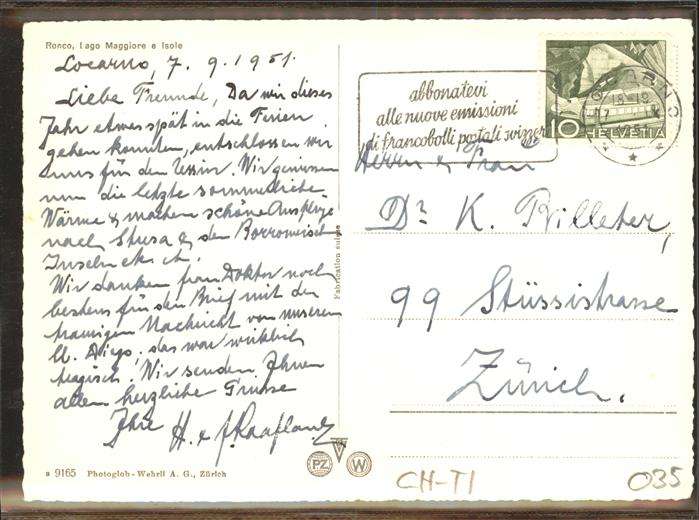 Ronco, Lago Maggiore e Isole
Locarno, 7. 9. 1951.
Liebe Freunde, Da wir dieses
Jahr etwas spät in die Ferien
gehen konnten, entschlossen wir
uns für den Tessin. Wir geniessen
nun die letzte sommerliche
Wärme & machen schöne Ausflüge
nach & den Borromeisch
Inseln etc. etc.
Wir danken Frau Doktor noch
bestens für den Brief mit der
traurigen Nachricht von unserem
lb. das war wirklich
tragisch! Wir senden Ihnen
allen herzliche Grüsse
Ihre H. &
a 9165 Photoglob-Wehrli A. G., Zürich
Fabrication suisse
PZ W
abbonatevi
alle nuove emissioni
di francobolli postali svizzeri
10 HELVETIA
Herrn & Frau
Dr K. Billeter,
99 Stüssistrasse
Zürich.
CH-TI
035